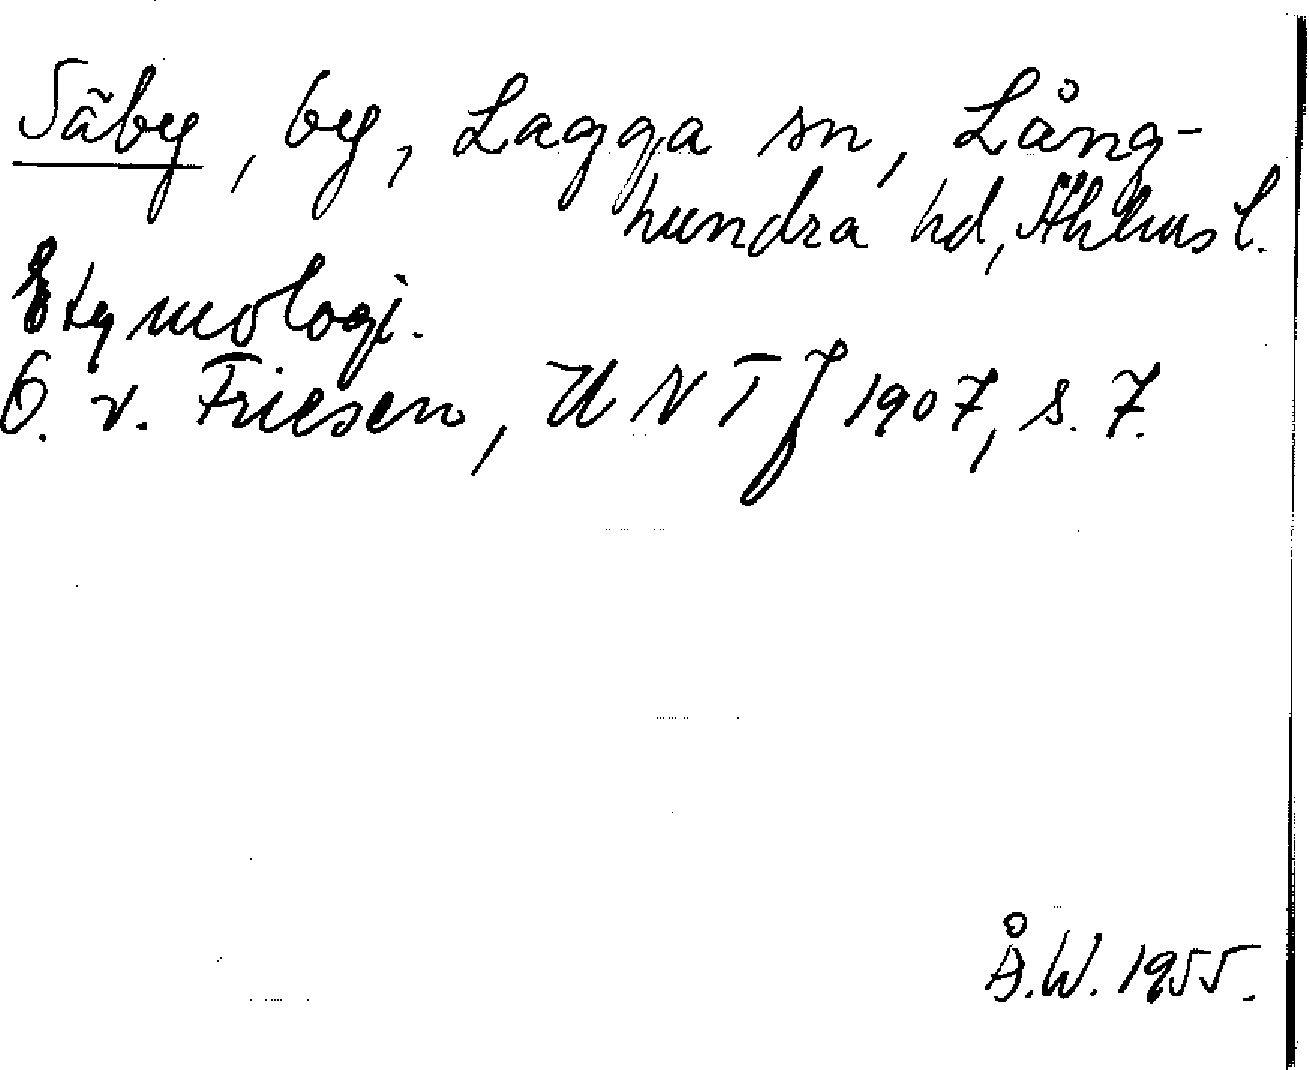 Säby, by, Lagga sn, Lång-
hundra hd, Sthlms l.
Etymologi.
O. v. Friesen, UNTJ 1907, s. 7.
Å.W. 1955.